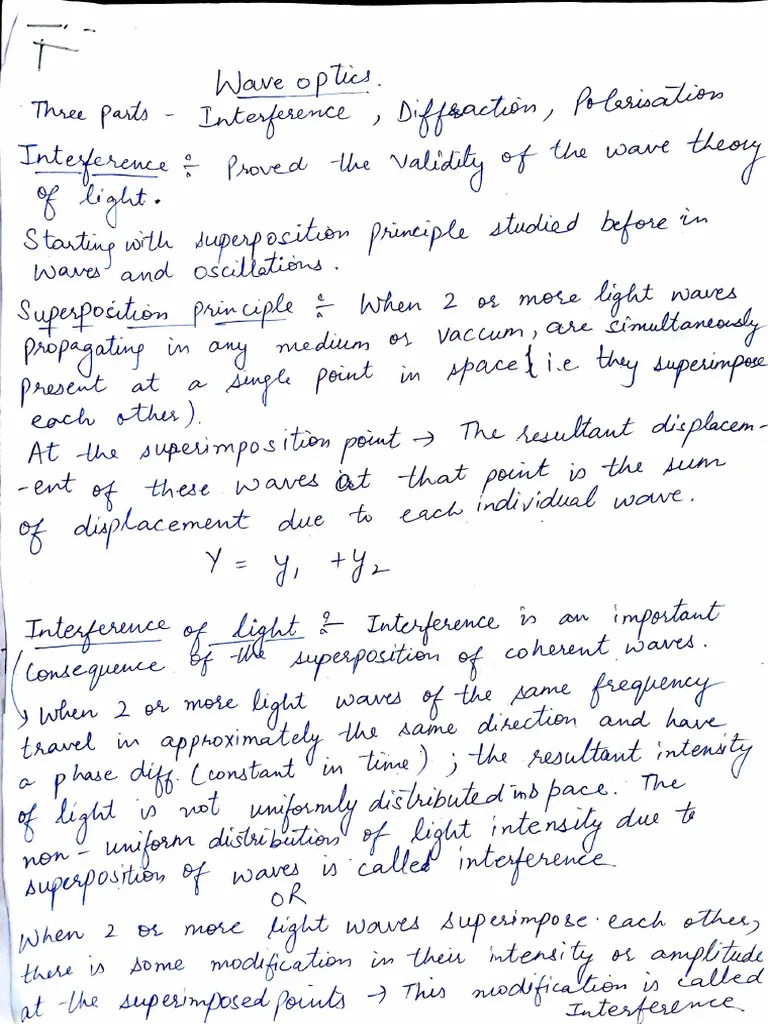 Wave optics.
Three parts - Interference, Diffraction, Polarisation
Interference :- Proved the validity of the wave theory
of light.
Starting with superposition principle studied before in
waves and oscillations.
Superposition principle :- When 2 or more light waves
propagating in any medium or vaccum, are simultaneously
present at a single point in space { i.e they superimpose
each other).
At the superimposition point → The resultant displacem-
-ent of these waves at that point is the sum
of displacement due to each individual wave.
Y = y1 + y2
Interference of light :- Interference is an important
Consequence of the superposition of coherent waves.
→ When 2 or more light waves of the same frequency
travel in approximately the same direction and have
a phase diff. (constant in time) ; the resultant intensity
of light is not uniformly distributed in space. The
non-uniform distribution of light intensity due to
superposition of waves is called interference
OR
When 2 or more light waves superimpose each other,
there is some modification in their intensity or amplitude
at the superimposed points → This modification is called
Interference